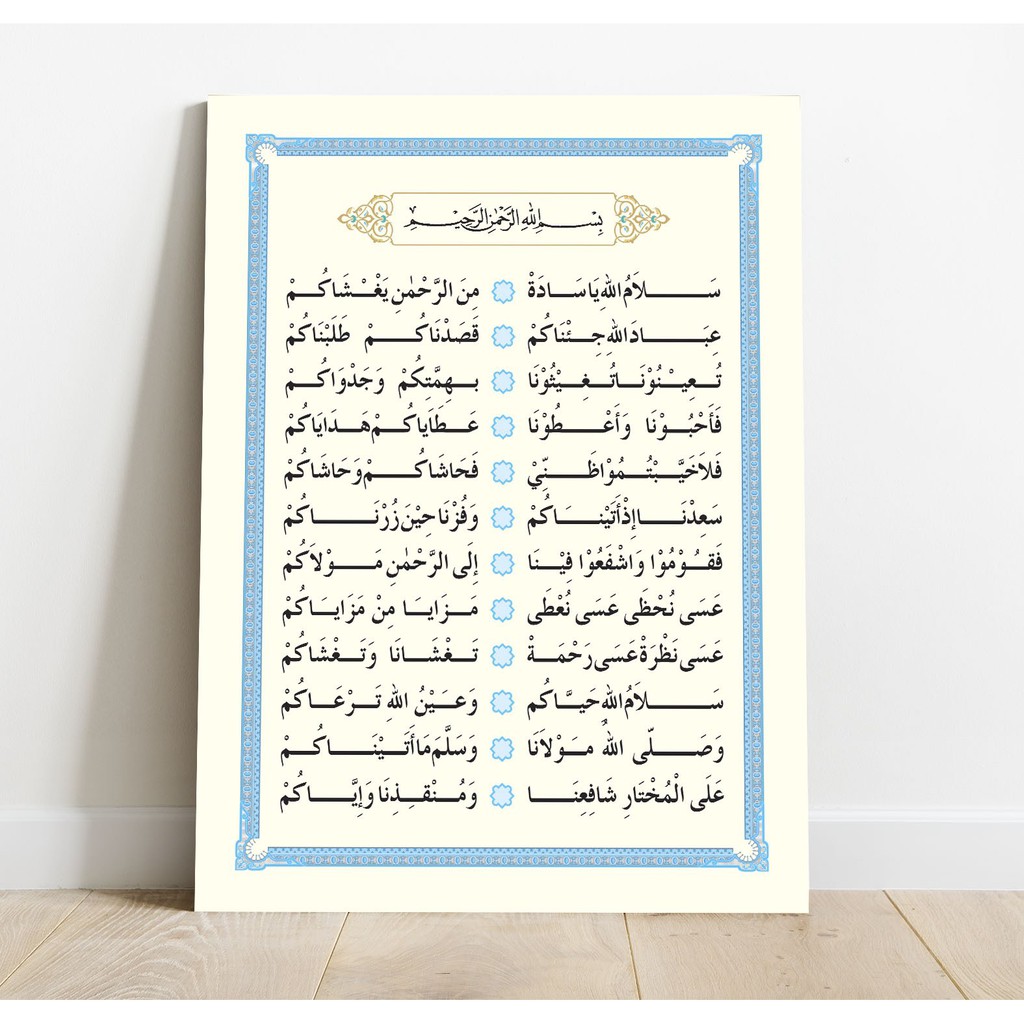 بِسْمِ اللهِ الرَّحْمٰنِ الرَّحِيْمِ
سَلاَمُ اللهِ يَاسَادَةْ مِنَ الرَّحْمٰنِ يَغْشَاكُمْ
عِبَادَ اللهِ جِئْنَاكُمْ قَصَدْنَاكُمْ طَلَبْنَاكُمْ
تُعِيْنُوْنَا تُغِيْثُوْنَا بِهِمَّتِكُمْ وَجَدْوَاكُمْ
فَأَحْبُوْنَا وَأَعْطُوْنَا عَطَايَاكُمْ هَدَايَاكُمْ
فَلاَخَيَّبْتُمُوْاظَنِّيْ فَحَاشَاكُمْ وَحَاشَاكُمْ
سَعِدْنَا إِذْأَتَيْنَاكُمْ وَفُزْنَا حِيْنَ زُرْنَاكُمْ
فَقُوْمُوْا وَاشْفَعُوْا فِيْنَا إِلَى الرَّحْمٰنِ مَوْلاَكُمْ
عَسَى نُحْظَى عَسَى نُعْطَى مَزَايَا مِنْ مَزَايَاكُمْ
عَسَى نَظْرَةْ عَسَى رَحْمَةْ تَغْشَانَا وَتَغْشَاكُمْ
سَلاَمُ اللهِ حَيَّاكُم وَعَيْنُ اللهِ تَرْعَاكُمْ
وَصَلّٰى اللهُ مَوْلاَنَا وَسَلَّمَ مَاأَتَيْنَاكُمْ
عَلَى الْمُخْتَارِ شَافِعِنَا وَمُنْقِذِنَا وَإِيَّاكُمْ